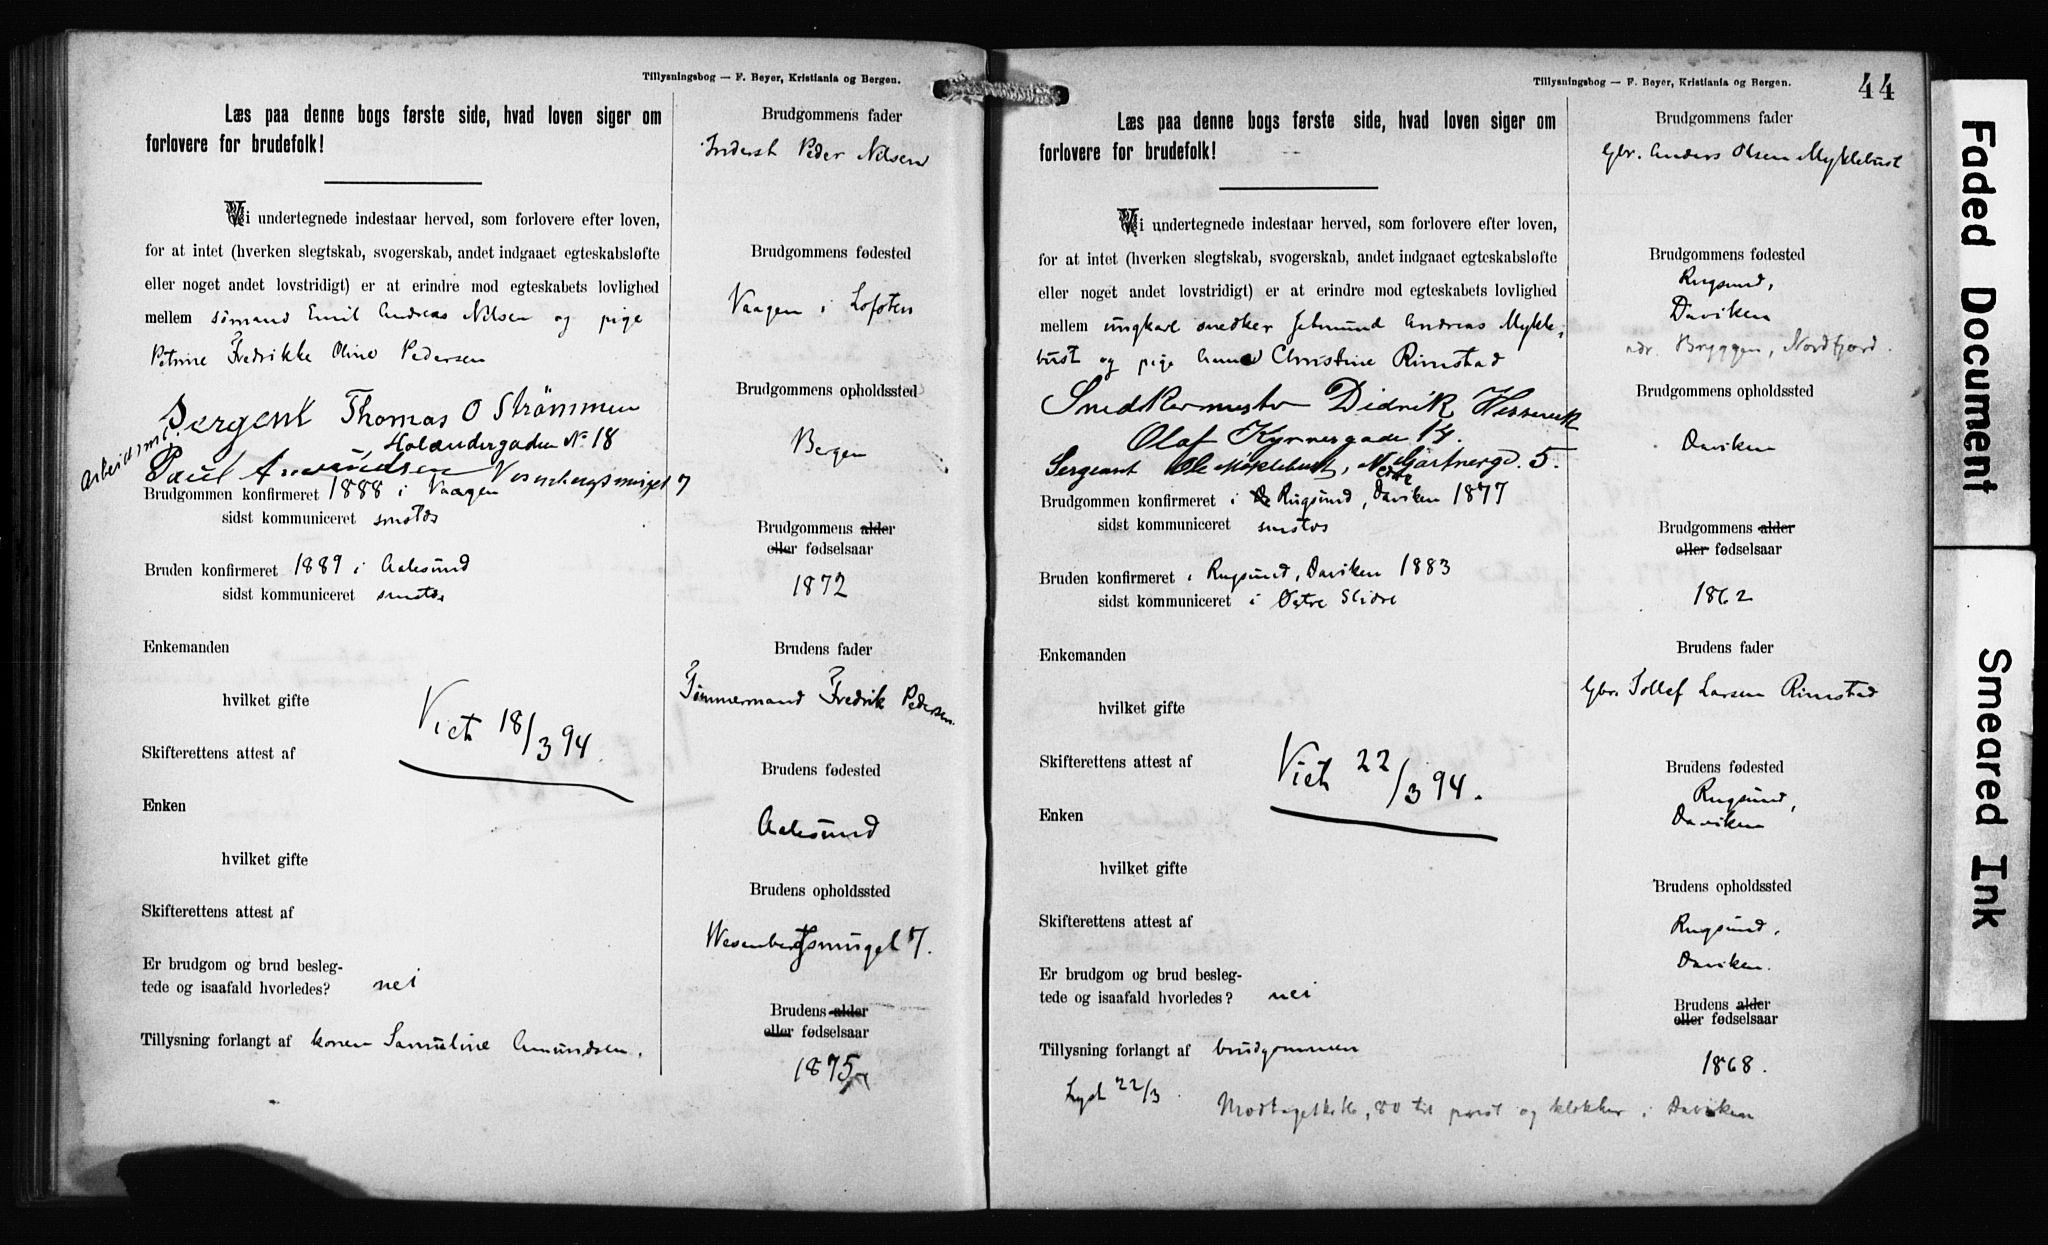 Tillysningsbog — F. Beyer, Kristiania og Bergen.
Læs paa denne bogs første side, hvad loven siger om
forlovere for brudefolk!
Vi undertegnede indestaar herved, som forlovere efter loven,
for at intet (hverken slegtskab, svogerskab, andet indgaaet egteskabsløfte
eller noget andet lovstridigt) er at erindre mod egteskabets lovlighed
mellem sømand Emil Andreas Nilsen og pige
Petrine Fredrikke Oline Pedersen
Sergent Thomas O Strömmen
Holændergaden No 18
arbeidsm.
Paul Amundsen
Brudgommen konfirmeret 1888 i Vaagen
sidst kommuniceret smstds
Bruden konfirmeret 1889 i Aalesund
sidst kommuniceret smstds
Enkemanden
hvilket gifte
Viet 18/3 94.
Skifterettens attest af
Enken
hvilket gifte
Skifterettens attest af
Er brudgom og brud besleg-
tede og isaafald hvorledes? nei
Tillysning forlangt af konen Samuline Amundsen.
Brudgommens fader
Inderst Peder Nilsen
Brudgommens fødested
Vaagen i Lofoten
Brudgommens opholdssted
Bergen
Brudgommens alder
eller fødselsaar
1872
Brudens fader
Tømmermand Fredrik Pedersen
Brudens fødested
Aalesund
Brudens opholdssted
Wesenbergsmuget 7.
Brudens alder
eller fødselsaar
1875
Tillysningsbog — F. Beyer, Kristiania og Bergen.
44
Læs paa denne bogs første side, hvad loven siger om
forlovere for brudefolk!
Vi undertegnede indestaar herved, som forlovere efter loven,
for at intet (hverken slegtskab, svogerskab, andet indgaaet egteskabsløfte
eller noget andet lovstridigt) er at erindre mod egteskabets lovlighed
mellem ungkarl snedker Andreas Mykle-
bust og pige Anne Christine Rimstad
Snedkermester Didrik
Olaf Kyrresgade 14.
Sergeant Ole Myklebust, Nedre Gartnergd. 5.
Brudgommen konfirmeret i Rugsund, Daviken 1877
sidst kommuniceret smstds
Bruden konfirmeret i Rugsund, Daviken 1883
sidst kommuniceret i Østre Slidre
Enkemanden
hvilket gifte
Skifterettens attest af
Viet 22/3 94.
Enken
hvilket gifte
Skifterettens attest af
Er brudgom og brud besleg-
tede og isaafald hvorledes? nei
Tillysning forlangt af brudgommen
Lyst 22/3
80 til prest og klokker i Daviken
Brudgommens fader
Gbr. Anders Olsen Myklebust
Brudgommens fødested
Rugsund,
Daviken
adr. Bryggen, Nordfjord.
Brudgommens opholdssted
Daviken
Brudgommens alder
eller fødselsaar
1862
Brudens fader
Gbr. Tollef Larsen Rimstad
Brudens fødested
Rugsund,
Daviken
Brudens opholdssted
Rugsund,
Daviken.
Brudens alder
eller fødselsaar
1868.
Faded Document
Smeared Ink